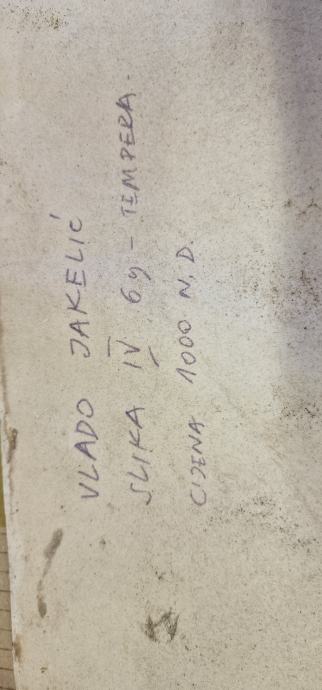 VLADO JAKELIĆ
SLIKA IV 69 - TEMPERA.
CIJENA 1000 N.D.